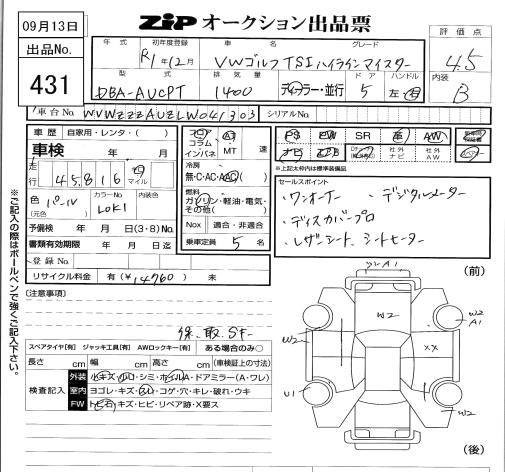 09月13日
出品No.
431
ZIP オークション出品票
評価点
4.5
内装
B
年式 初年度登録 車名 グレード
R1年12月 VWゴルフTSIハイラインマイスター
型式 排気量 ドア ハンドル
DBA-AUCPT 1400 ディーラー・並行 5 左・右
車台No. WVWZZZAUZLW041303 シリアルNo.
車歴 自家用・レンタ( )
車検 年 月
走行 45,816 マイル
色(元色) カラーNo. 内装色
パール LOK1
予備検 年 月 日(3・8)No.
書類有効期限 年 月 日迄
登録No.
リサイクル料金 有(¥14760) 無
フロア AT 速
コラム
インパネ MT
冷房
無・C・AC・AAC
燃料
ガソリン・軽油・電気・
その他( )
Nox 適合・非適合
乗車定員 5 名
PS PW SR 革 AW
ナビ エアB 社外ナビ 社外AW
※上記太枠内は標準装備品
セールスポイント
・ワンオーナー ・デジタルメーター
・ディスカバープロ
・レザーシート、シートヒーター
(注意事項)
保、取、SF-
スペアタイヤ[有] ジャッキ工具[有] AWロックキー[有] ある場合のみ○
長さ cm 幅 cm 高さ cm (車検証上の寸法)
検査記入
外装 小キズ・小凹・シミ・ホイルA・ドアミラー(A・ワレ)
室内 ヨゴレ・キズ・スレ・コゲ・穴・キレ・破れ・ウキ
FW トビ石・キズ・ヒビ・リペア跡・X要ス
※ご記入の際はボールペンで強くご記入下さい。
(前)
A1
W2
W2
A1
W2
XX
U1
W2
(後)